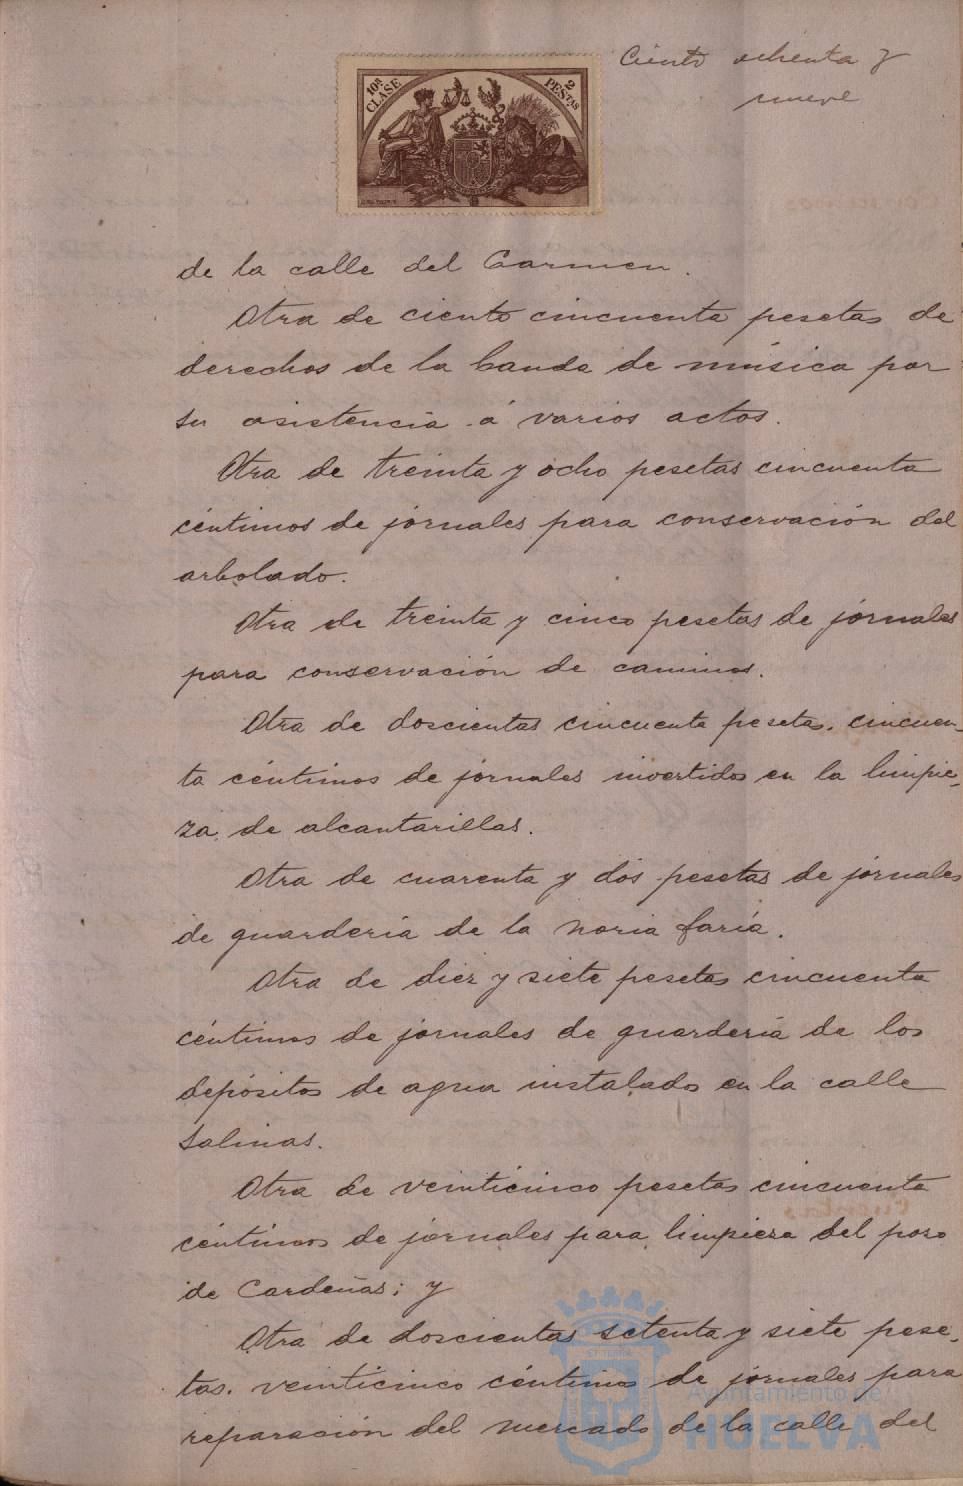 Ciento ochenta y
nueve
10ª CLASE
2 PESTAS
de la calle del Carmen.
Otra de ciento cincuenta pesetas de
derechos de la banda de música por
su asistencia á varios actos.
Otra de treinta y ocho pesetas cincuenta
céntimos de jornales para conservación del
arbolado.
Otra de treinta y cinco pesetas de jornales
para conservación de caminos.
Otra de doscientas cincuenta pesetas, cincuen-
ta céntimos de jornales invertidos en la limpie-
za, de alcantarillas.
Otra de cuarenta y dós pesetas de jornales
de guardería de la noria faría.
Otra de diez y siete pesetas cincuenta
céntimos de jornales de guardería de los
depósitos de agua instalados en la calle
Salinas.
Otra de veinticinco pesetas cincuenta
céntimos de jornales para limpieza del pozo
de Cardeñas; y
Otra de doscientas setenta y siete pese-
tas. veinticinco céntimos de jornales para
reparación del mercado de la calle del
Ayuntamiento de
HUELVA